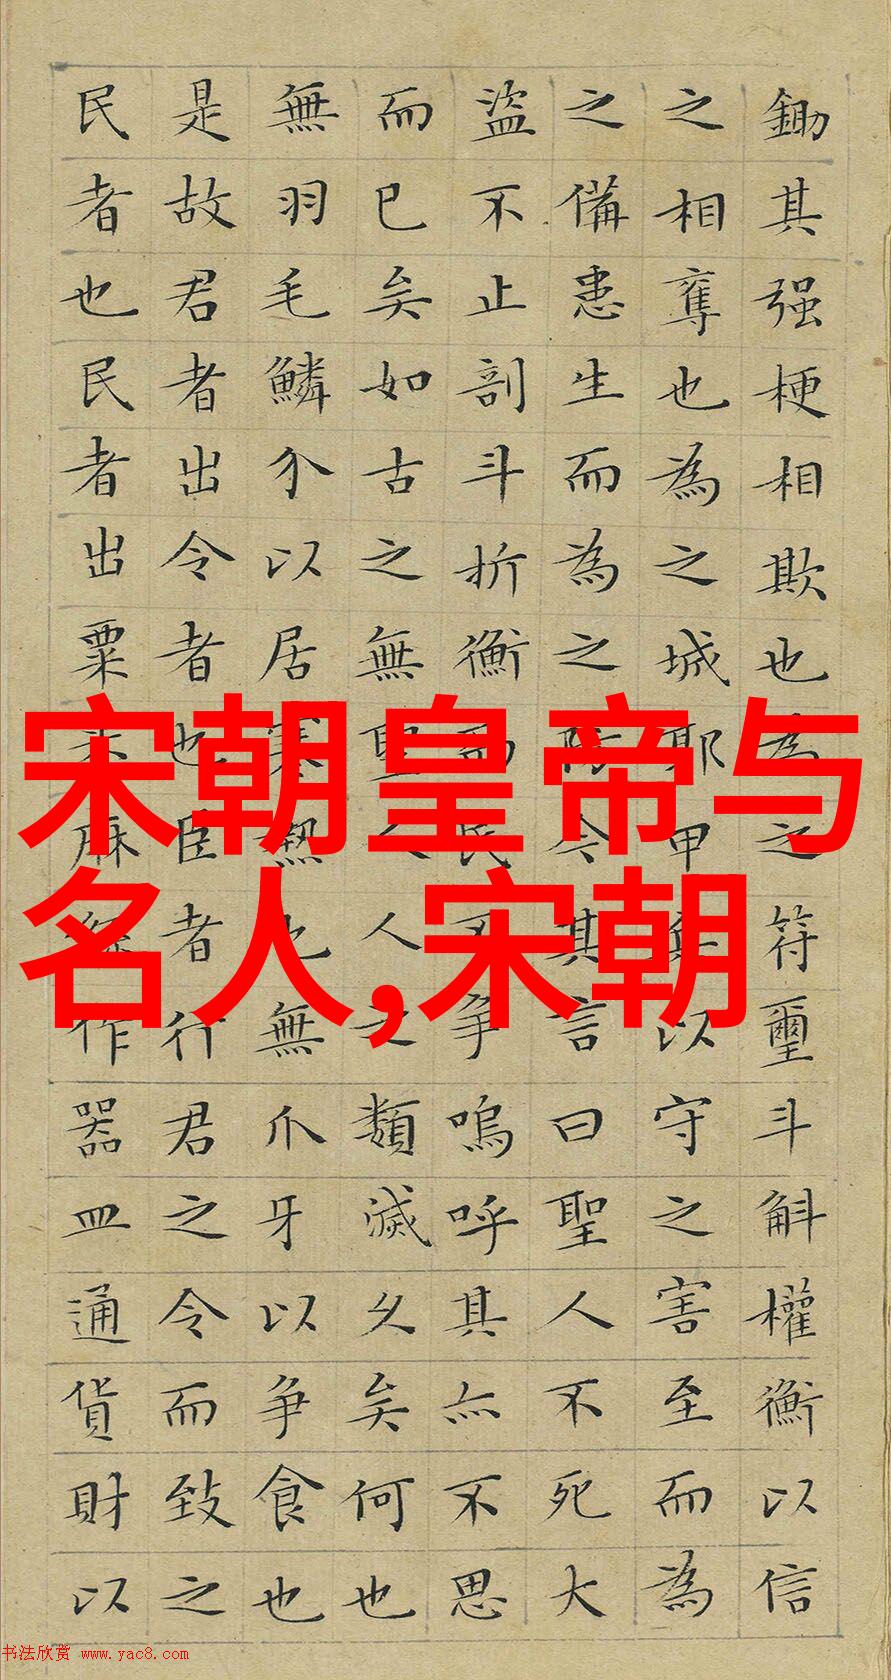 鋤其强梗相欺也為之符璽斗斛權衡以信
之相奪也為之城耶甲兵以守之害至而為
之備患生而為之防今其言曰聖人不死大
盜不止剖斗折衡而民不爭嗚呼其亦不思
而已矣如古之無聖人人之類滅久矣何也
無羽毛鱗介以居寒熱也無爪牙以爭食也
是故君者出令者也臣者行君之令而致之
民者也民者出粟米麻絲作器皿通貨財以
宋朝皇帝与
名人,宋朝
书法欣赏 www.yac8.com